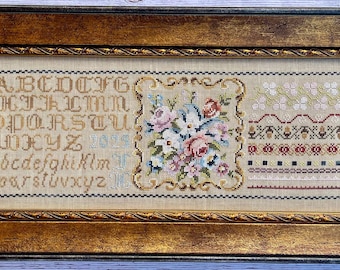 ABCDEFG
HIJKLMN
OPQRSTU
VWXYZ
abcdefghijklm
nopqrstuvwxyz